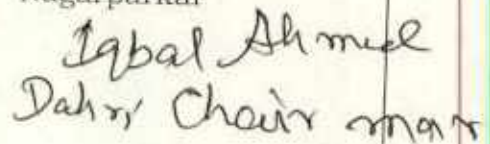 Nagarparkar
Iqbal Ahmed
Dahri Chair man